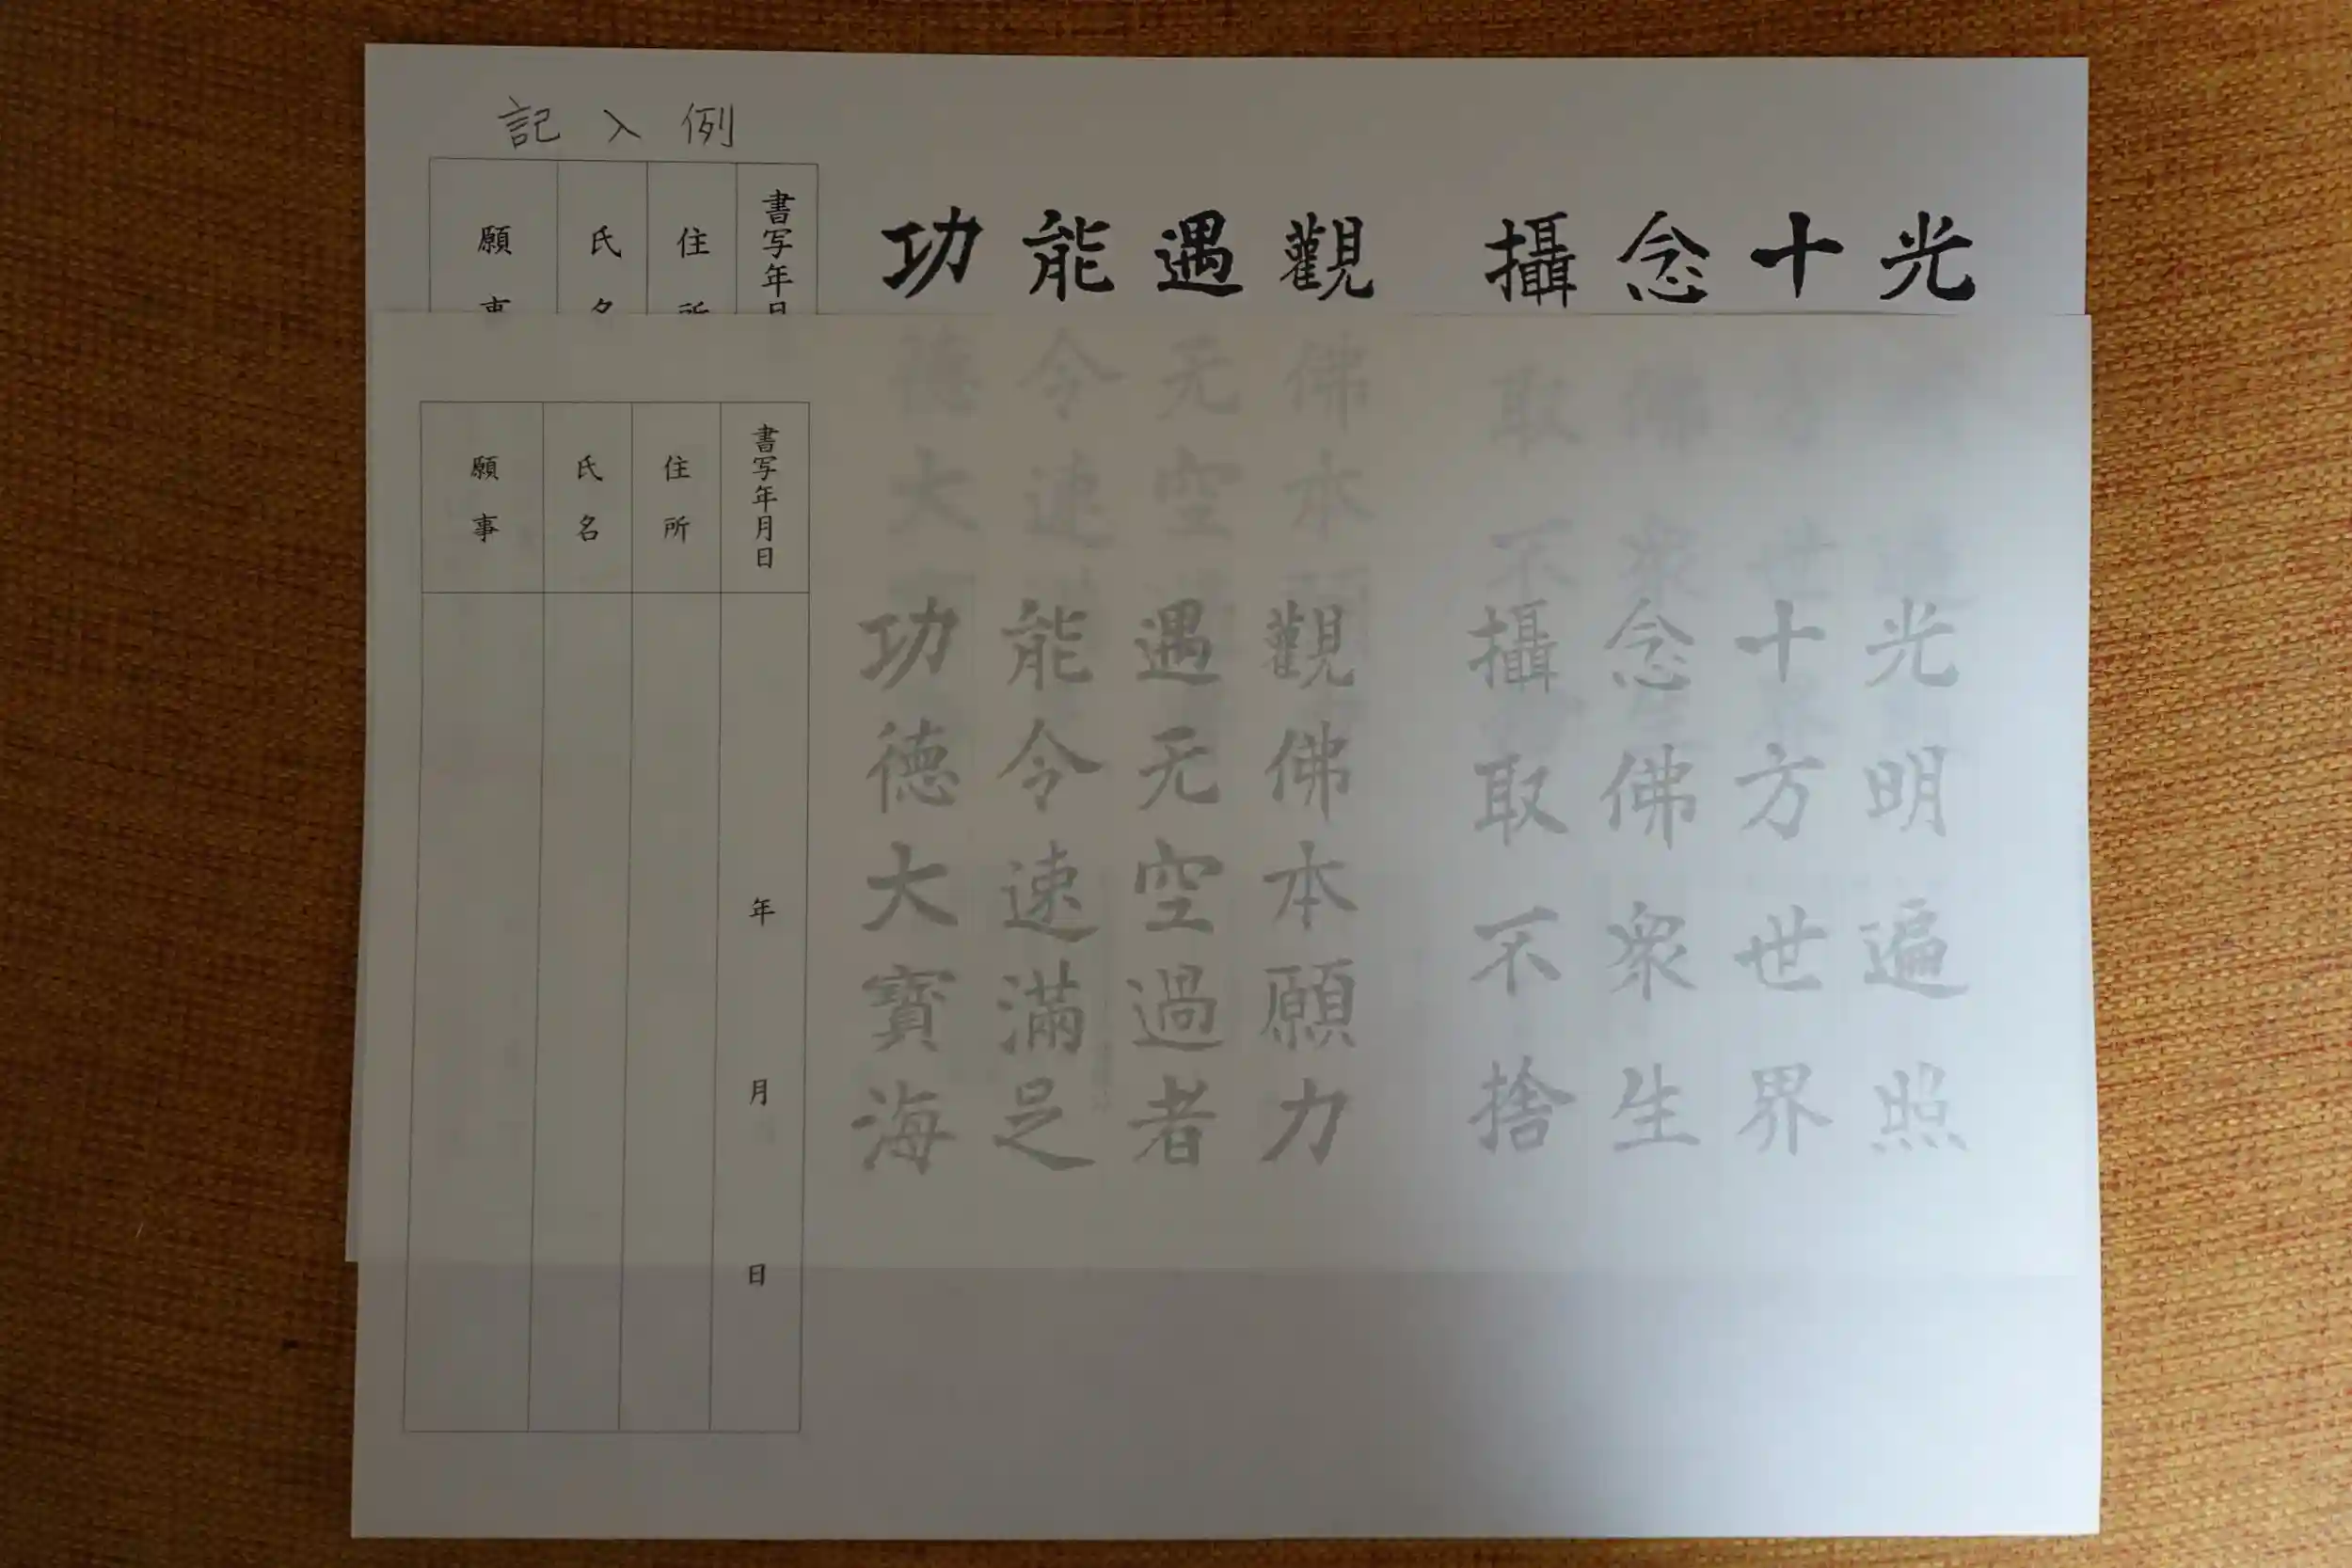 記入例
光
十
念
攝
觀
遇
能
功
書写年日
住所
氏名
願事
光明遍照
十方世界
念佛衆生
攝取不捨
觀佛本願力
遇无空過者
能令速滿足
功德大寳海
書写年月日
年月日
住所
氏名
願事